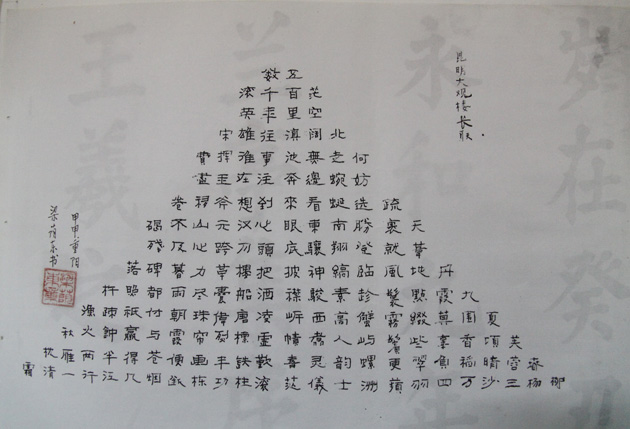 昆明大观楼长联
五百里滇池奔來眼底披襟岸幘喜茫
茫空阔無邊看東驤神駿西翥灵儀
北走蜿蜒南翔縞素高人韵士
何妨选勝登臨趁蟹屿螺洲
疏裹就風鬟霧鬢更蘋
天葦地點綴些翠羽
丹霞莫辜負四
九围香稻万
夏頃晴沙
芙蓉三
春楊
柳
数千年往事注到心頭把酒凌虚歎滚
滚英雄誰在想汉习樓船唐標鉄柱
宋揮玉斧元跨革囊偉烈丰功
費盡移山心力尽珠帘画栋
卷不及暮雨朝霞便斷
碣殘碑都付与苍烟
落照祇赢得几
杵疏鐘半江
渔火两行
秋雁一
枕清
霜
甲申重阳
梁蔭东书